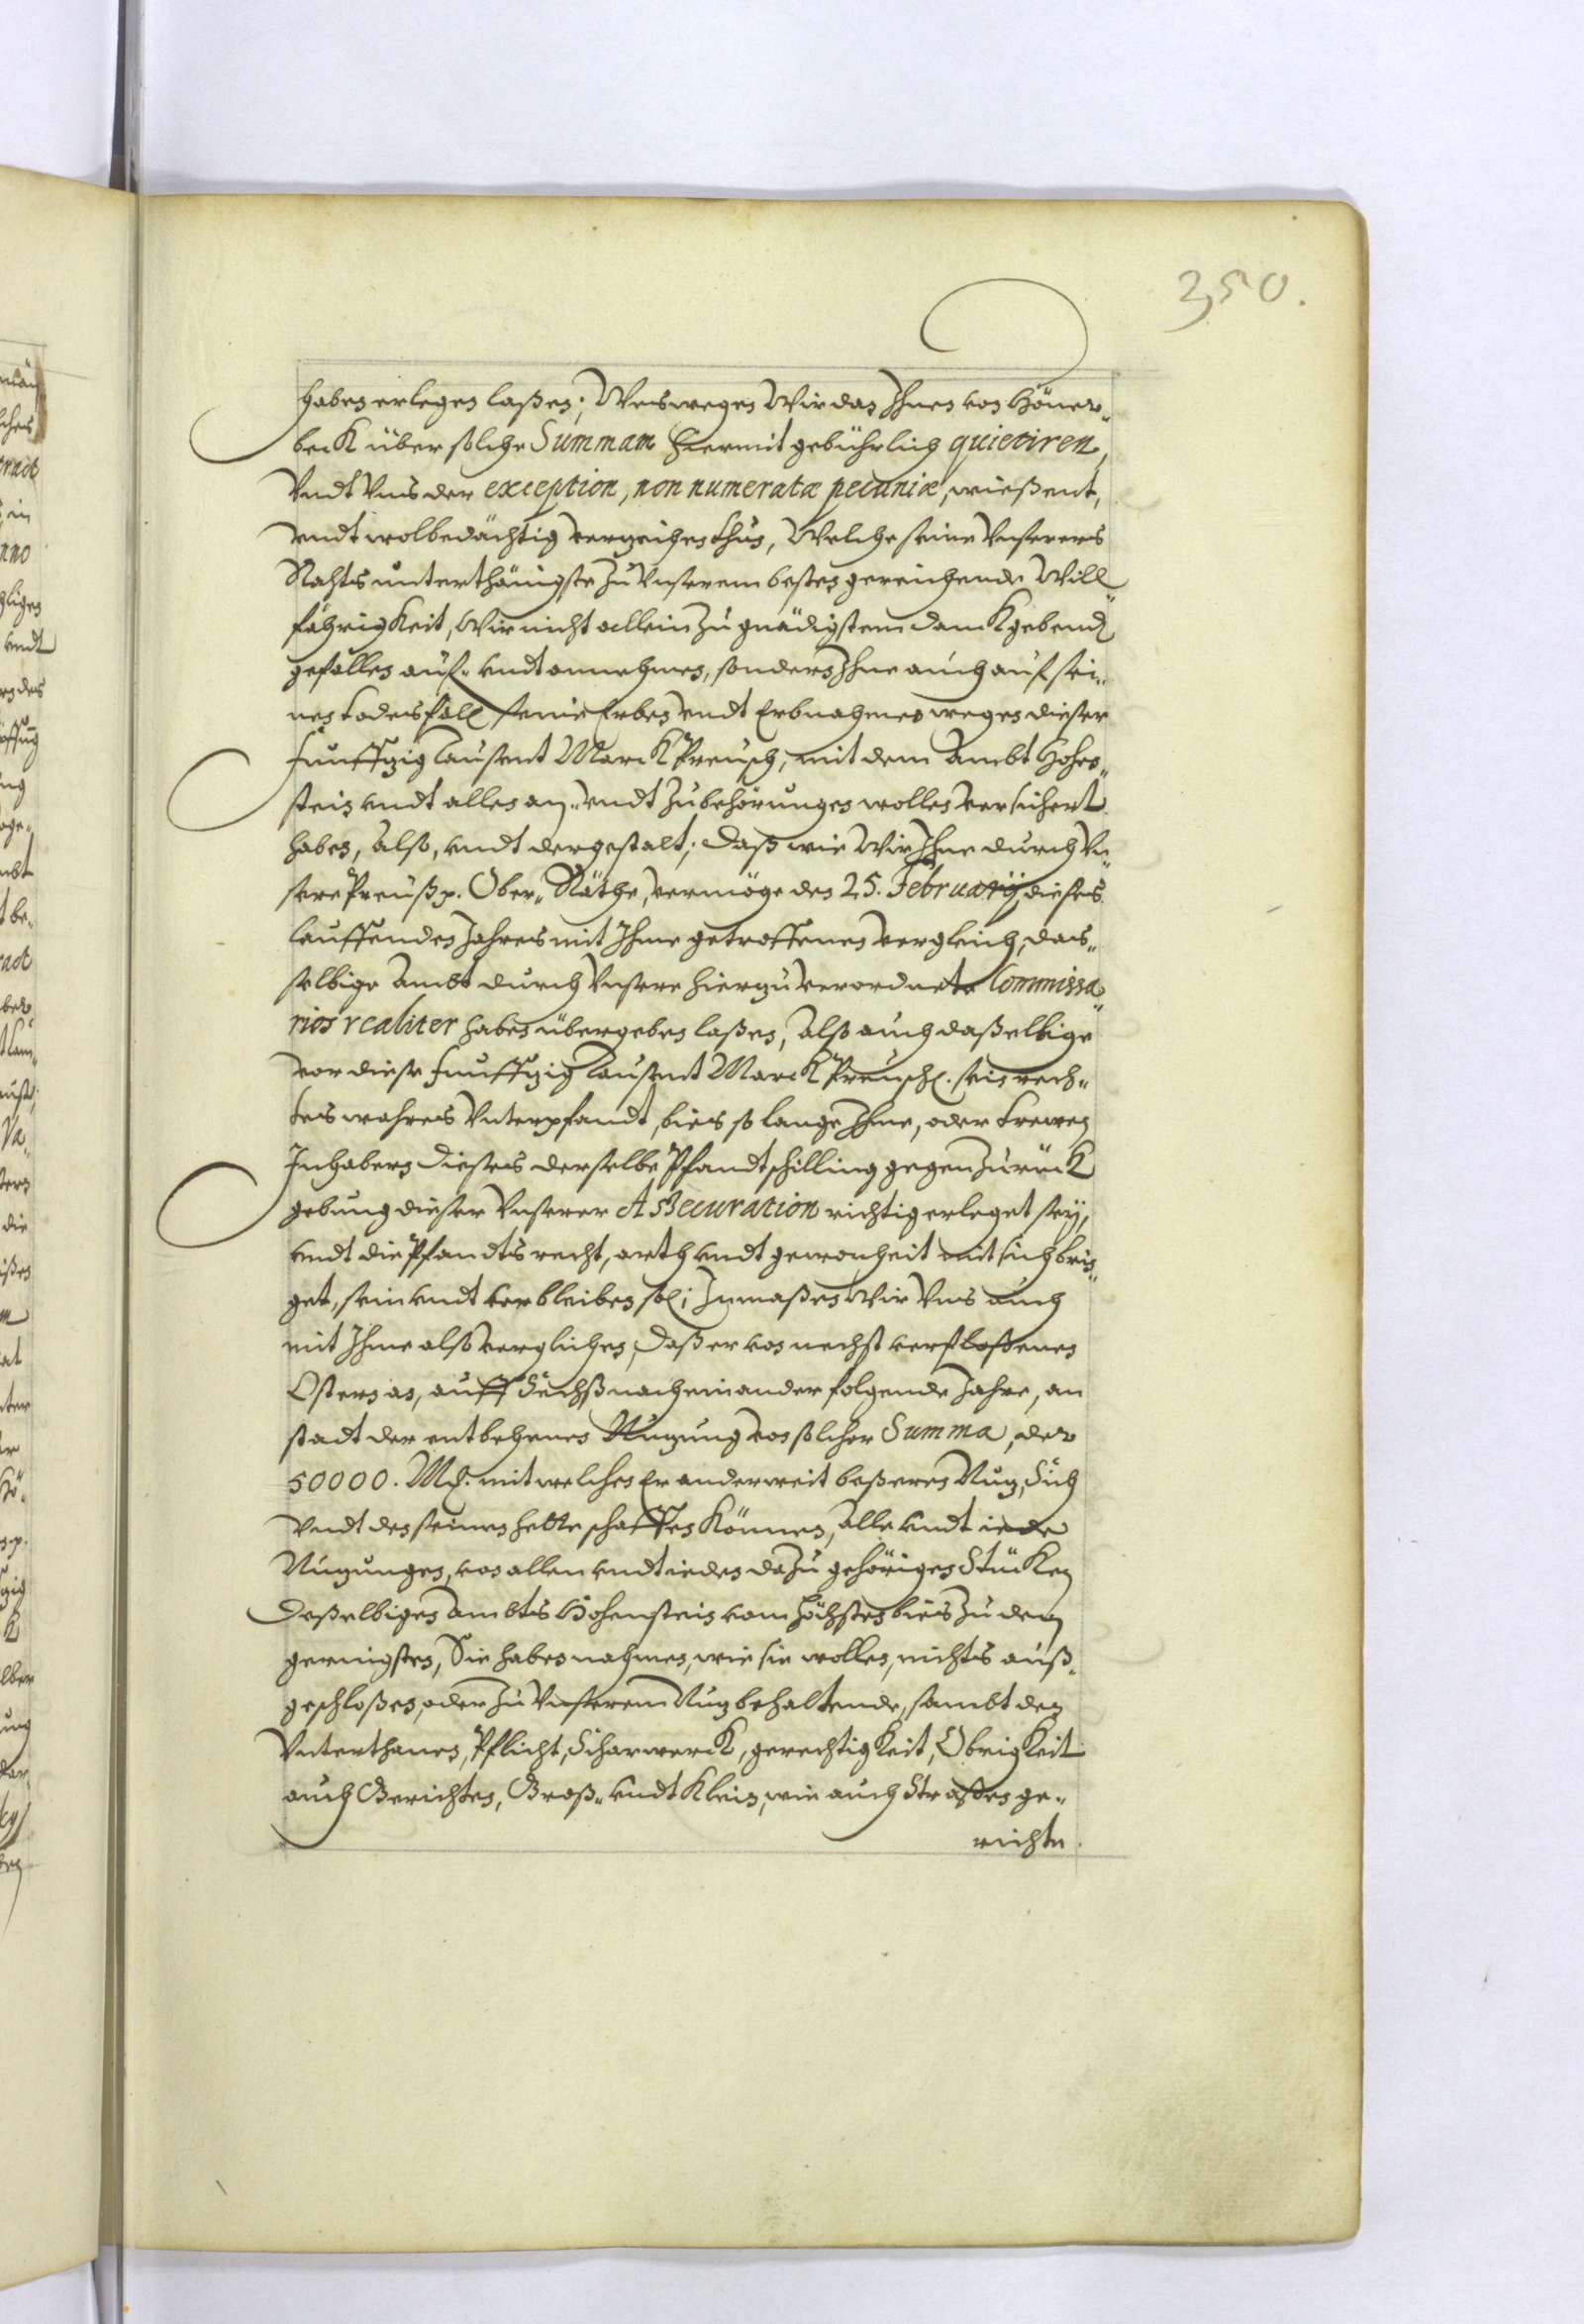 350.
haben erlegen laßen; Weswegen Wir dan Ihnen von Höner„
beck über solche Summam hiermit gebührlich quietiren,
Vndt Vns der exception, non numeratæ pecuniæ, wießent,
vndt wolbedächtig verzeihen thun, Welche seine Vnserers
Rahts unterthänigste zu Vnserem besten gereichende Will
fährigkeit, Wir nicht allein zu gnädigstem danckgebend
gefallen auf„ vndt annehmen, sondern Ihne auch auf sei„
nen todesfall seine Erben vndt Erbnahmen wegen dieser
Funffzig tausent Marck Preusch, mit dem Ambt Hohen„
stein vndt allen an„ vndt Zubehörungen wollen versichert
haben, also, vndt dergestalt; daß wie Wir Ihne durch Vn„
sere Preußp. Ober„ Räthe, vermöge des 25. Februarij, dieses
lauffenden Jahres mit Ihme getroffenen vergleich, das„
selbige Ambt durch Vnsere hierzu verordnete Commissa„
rios realiter haben übergeben laßen, also auch daßelbige
vor diese Funffzig tausent Marck Preusch. sein rech„
tes wahres Vnterpfandt, bies so lange Ihme, oder trewen
Inhabern dieses derselbe Pfandtschilling gegen zurück
gebung dieser Vnserer Assecuration richtig erleget sey,
vndt die Pfandts recht, arth vndt gewonheit mit sich brin„
get, sein vndt verbleiben sol; Inmaßen Wir Vns auch
mit Ihme also verglichen, daß er von nechst verfloßenen
Ostern an, auff Sechß nacheinander folgende Jahre, an
stadt der entbehrnen Nuzung von solcher Summa, der
50000. Mk. mit welchen Er anderweit beßeren Nuz, Sich
vndt den seinen hette schaffen können, alle vndt iede
Nuzungen, von allen vndt ieden dazu gehörigen Stücken
deßelbigen Ambts Hohenstein vom höchsten bies zu dem
geringsten, Sie haben nahmen, wie sie wollen, nichts auß„
geschloßen, oder zu Vnserem Nuz behaltende, sambt den
Vnterthanen, Pflicht, Scharwerck, gerechtigkeit, Obrigkeit
auch Gerichten, Groß„ vndt klein, wie auch Straßen ge„
richte